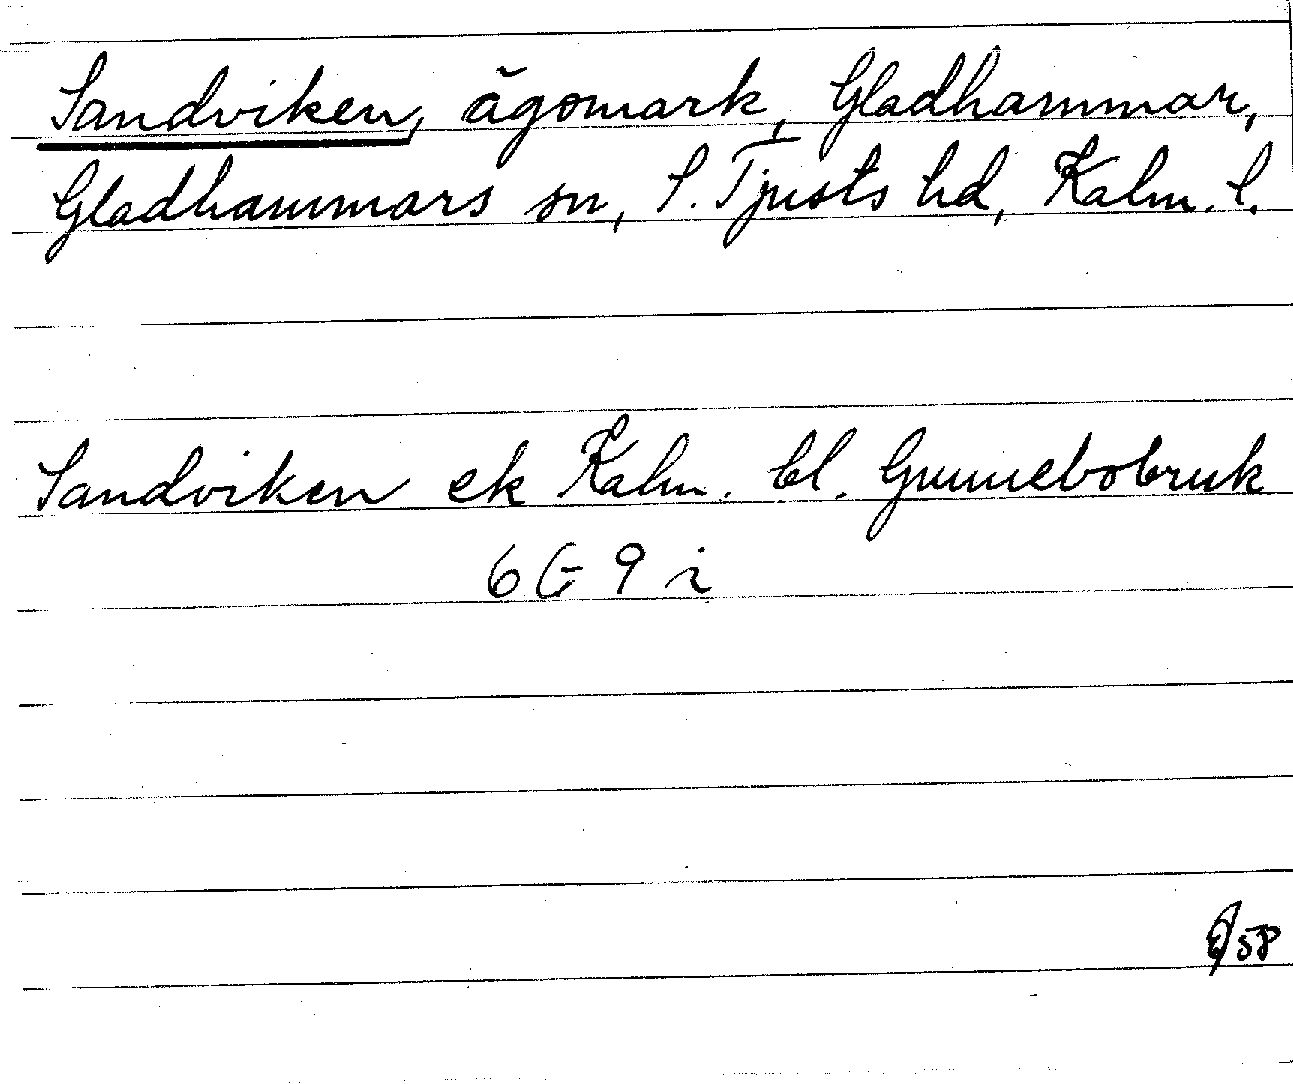 Sandviken, ägomark, Gladhammar,
Gladhammars sn, S. Tjusts hd, Kalm. l.
Sandviken ek Kalm. bl. Gunnebobruk
6 G 9 i
58